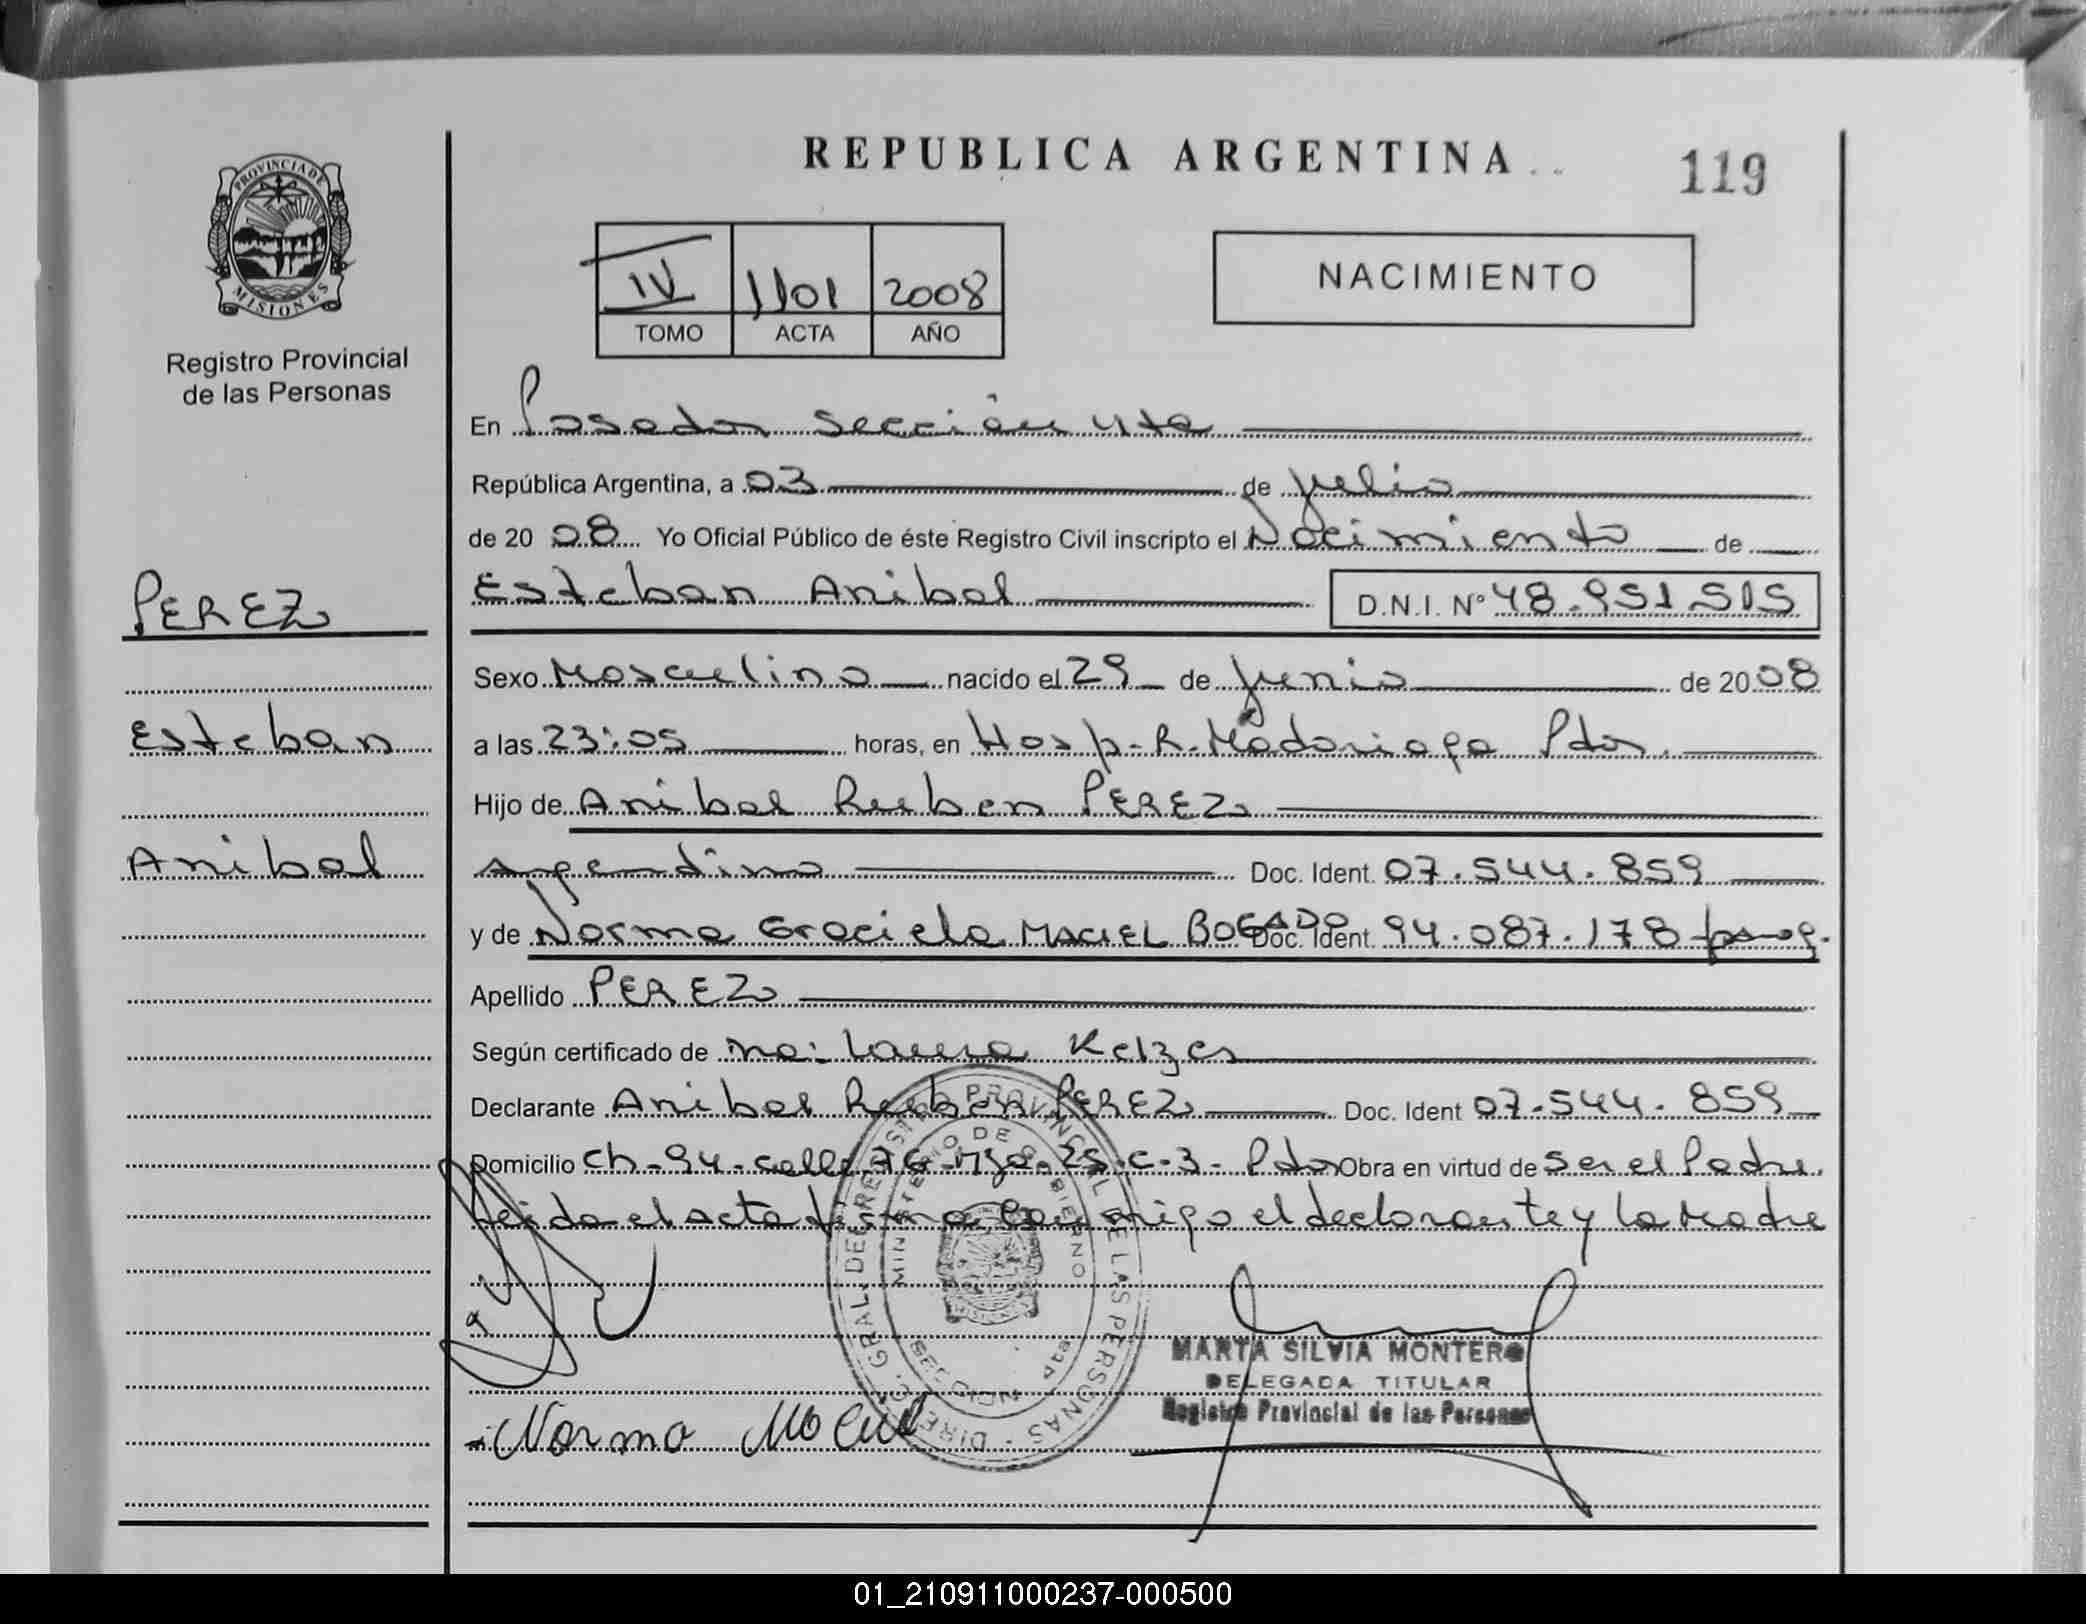 REPUBLICA ARGENTINA
119
PROVINCIA DE
MISIONES
Registro Provincial
de las Personas
IV 1101 2008
TOMO ACTA AÑO
NACIMIENTO
En Posadas Sección 4ta
República Argentina, a 03 de julio
de 20 08 Yo Oficial Público de éste Registro Civil inscripto el Nacimiento de
PEREZ
Esteban Anibal D.N.I. Nº 48.951.515
Sexo Masculino nacido el 29 de junio de 20 08
Esteban
a las 23:05 horas, en Hosp. R. Madariaga Pdas.
Hijo de Anibal Ruben PEREZ
Anibal
Argentino Doc. Ident. 07.544.859
y de Norma Graciela MACIEL BOGADO Doc. Ident. 94.087.178
Apellido PEREZ
Según certificado de Ma: Laura Kelzes
Declarante Anibal Ruben PEREZ Doc. Ident 07.544.859
Domicilio Ch-94-calle 76-Mza.25.C-3-Pdas Obra en virtud de Ser el Padre.
leida el acta firma conmigo el declarante y la Madre
DIREC. GRAL. DE REGISTRO PROVINCIAL DE LAS PERSONAS
MINISTERIO DE GOBIERNO
MARTA SILVIA MONTERO
DELEGADA TITULAR
Registro Provincial de las Personas
Norma Maciel
01_210911000237-000500